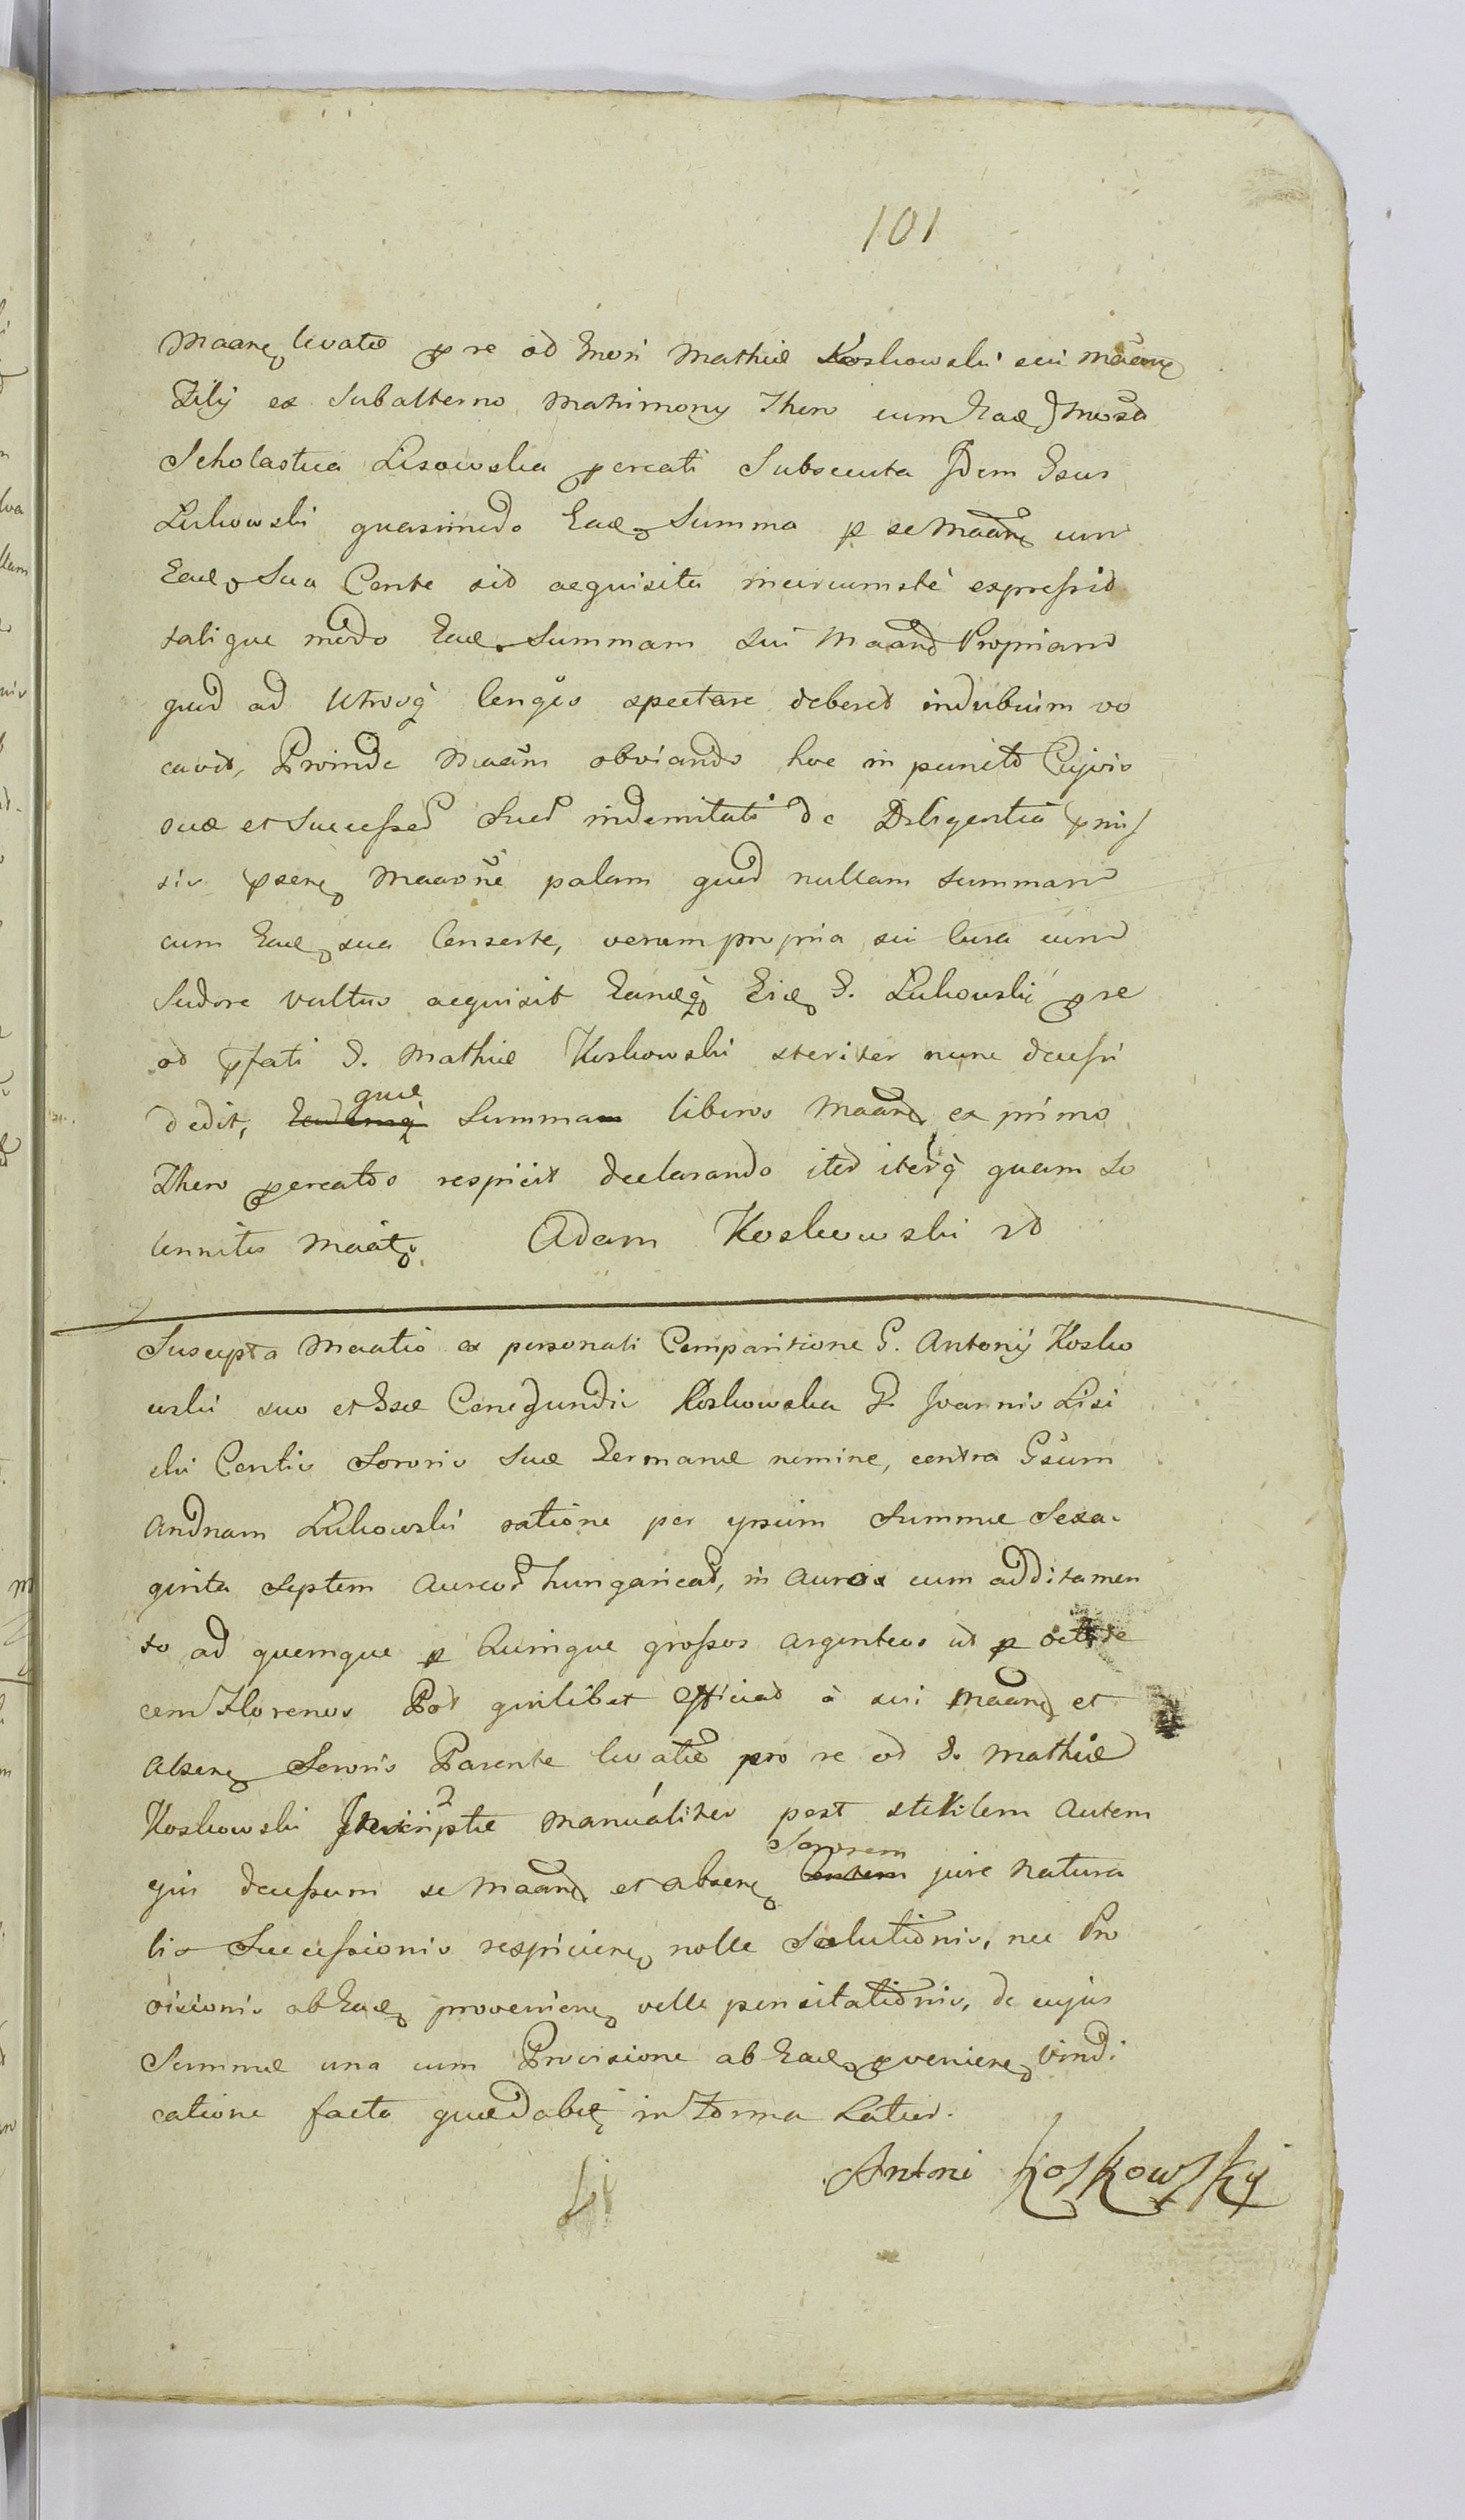 101
Maane levatæ pre od Gnosi Mathiæ Koskowski sui Maane
Filij ex Subalterno Matrimony Thoro cum Eade Gnosa
Scholastica Lisowska pcreati Subsecuta Idem Gsus
Lukowski quasimodo Eade Summa p se Maane cum
Eade Sua Conte sit acquisita incircumste expressit
talique modo Eade Summam sui Maand Propriam
quod ad Utrosq̃ Conges spectare deberet in dubium vo
cavit, Proinde Maans obviando hoc in puncto Cujvis
suæ et Successed Sued indemitati de Diligentia
sie psene Maaone palam quod nullam summam
cum Eade sua Consorte, verum propria sui Cura cum
Sudore vultus acquisit Eandq̃ Eide G. Lukowski pre
od pfati G. Mathiæ Koskowski steriter nunc decessi
dedit, quæ Summa liberos Maand ex primo
Thoro pcreatos respicit declarando ited itedq̃ quam So
lennites Maats. Adam Koskowski
Suscepta Maatio ex personali Comparitione G. Antonij Kosko
wski suo et Gsæ Conegundis Koskowska G. Joannis Lisi
cki Contis Sororis Suæ Germanæ nomine, contra Gsum
Andnam Lukowski ratione per ipsum Summæ Sexa-
ginta Septem Aureod hungaricad, in Auro cum additamen
to ad quemque p Quinque grossos argenteos ut p octode
cem Florenos Pol quilibet efficiad à sui Maand et
Absene Sororis Parente levatæ pro re od G. Mathiæ
Koskowski Inscriptæ manualiter post sterilem Autem
ejus decessum se Maand et absene Sororem jure natura
lis Successionis respiciene nolle Solutionis, nec Pro
visionis ab Eade proveniene velle pensitationis, de cujus
Summæ una cum Provisione ab Eade pveniene vindi
catione facta quædabit in Forma Latius.
Antoni Koskowsky